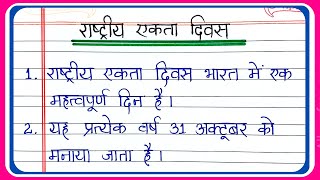 राष्ट्रीय एकता दिवस
1. राष्ट्रीय एकता दिवस भारत में एक
महत्वपूर्ण दिन है।
2. यह प्रत्येक वर्ष 31 अक्टूबर को
मनाया जाता है।